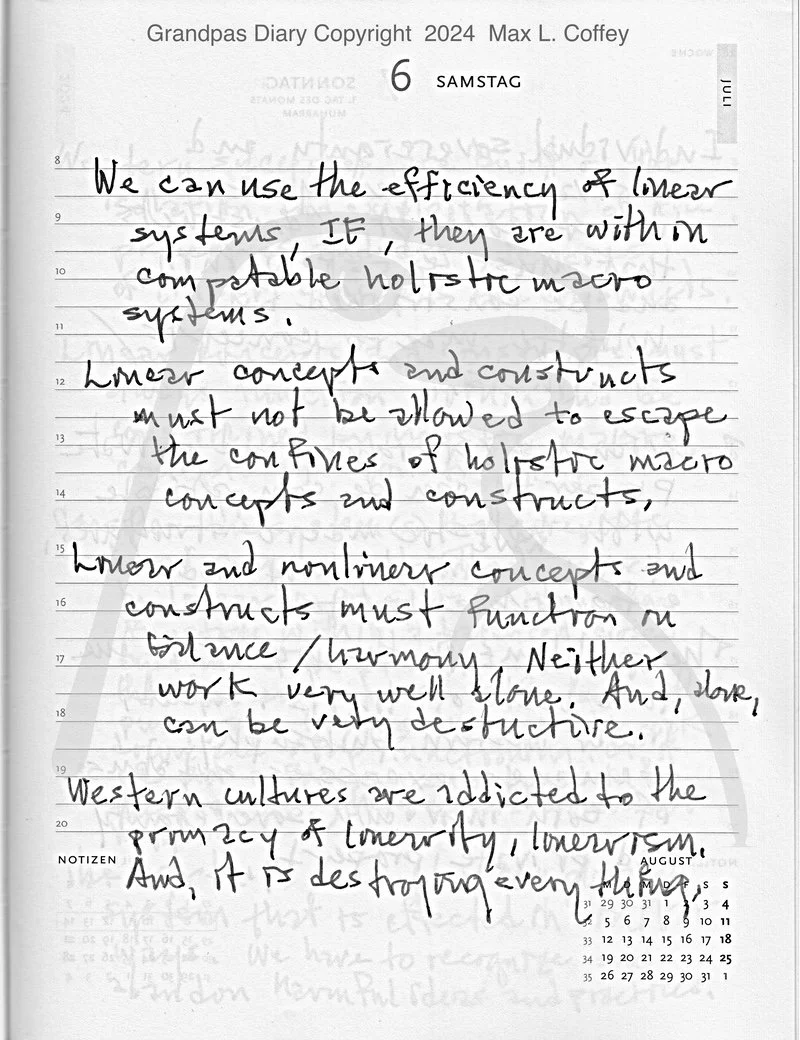 Grandpas Diary Copyright 2024 Max L. Coffey
6 SAMSTAG
JULI
8
We can use the efficiency of linear
9
systems, IF, they are within
10
compatable holistic macro
systems.
11
12
Linear concepts and constructs
must not be allowed to escape
13
the confines of holistic macro
14
concepts and constructs,
15
Linear and nonlinear concepts and
16
constructs must function in
balance / harmony. Neither
17
work very well alone. And, alone,
18
can be very destuctive.
19
Western cultures are addicted to the
20
primacy of linearity, linearism.
NOTIZEN
And, it is destroying every thing.
AUGUST
M D M D F S S
31 29 30 31 1 2 3 4
32 5 6 7 8 9 10 11
33 12 13 14 15 16 17 18
34 19 20 21 22 23 24 25
35 26 27 28 29 30 31 1